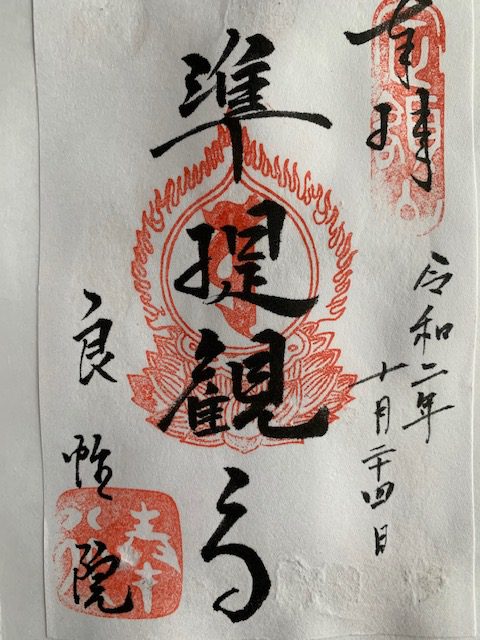 奉拝
令和二年
十月二十四日
準提観音
良 院